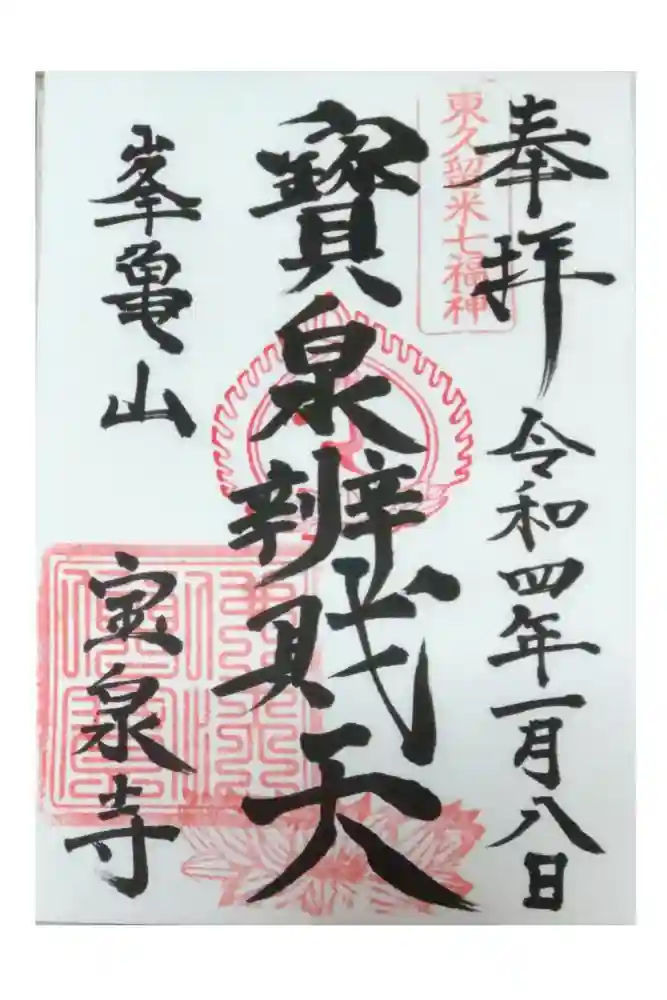 奉拝
令和四年一月八日
東久留米七福神
寶泉辨財天
峯亀山
宝泉寺